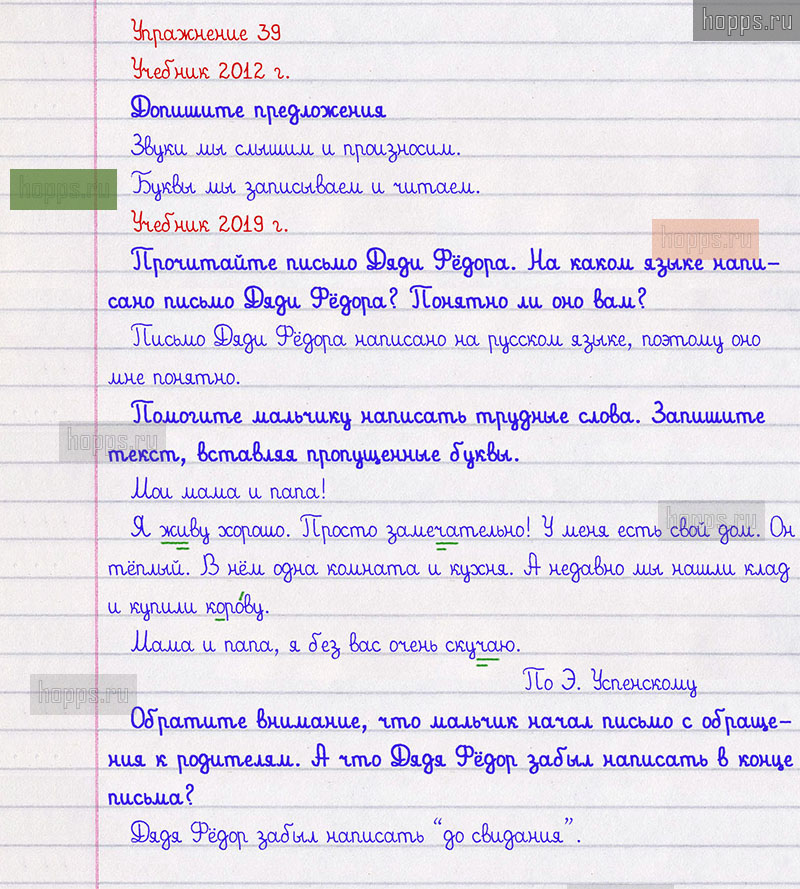 hopps.ru
Упражнение 39
Учебник 2012 г.
Допишите предложения
Звуки мы слышим и произносим.
hopps.ru
Буквы мы записываем и читаем.
Учебник 2019 г.
hopps.ru
Прочитайте письмо Дяди Фёдора. На каком языке напи-
сано письмо Дяди Фёдора? Понятно ли оно вам?
Письмо Дяди Фёдора написано на русском языке, поэтому оно
мне понятно.
Помогите мальчику написать трудные слова. Запишите
hopps.ru
текст, вставляя пропущенные буквы.
Мои мама и папа!
hopps.ru
Я живу хорошо. Просто замечательно! У меня есть свой дом. Он
тёплый. В нём одна комната и кухня. А недавно мы нашли клад
и купили коро́ву.
Мама и папа, я без вас очень скучаю.
По Э. Успенскому
hopps.ru
Обратите внимание, что мальчик начал письмо с обраще-
ния к родителям. А что Дядя Фёдор забыл написать в конце
письма?
Дядя Фёдор забыл написать “до свидания”.